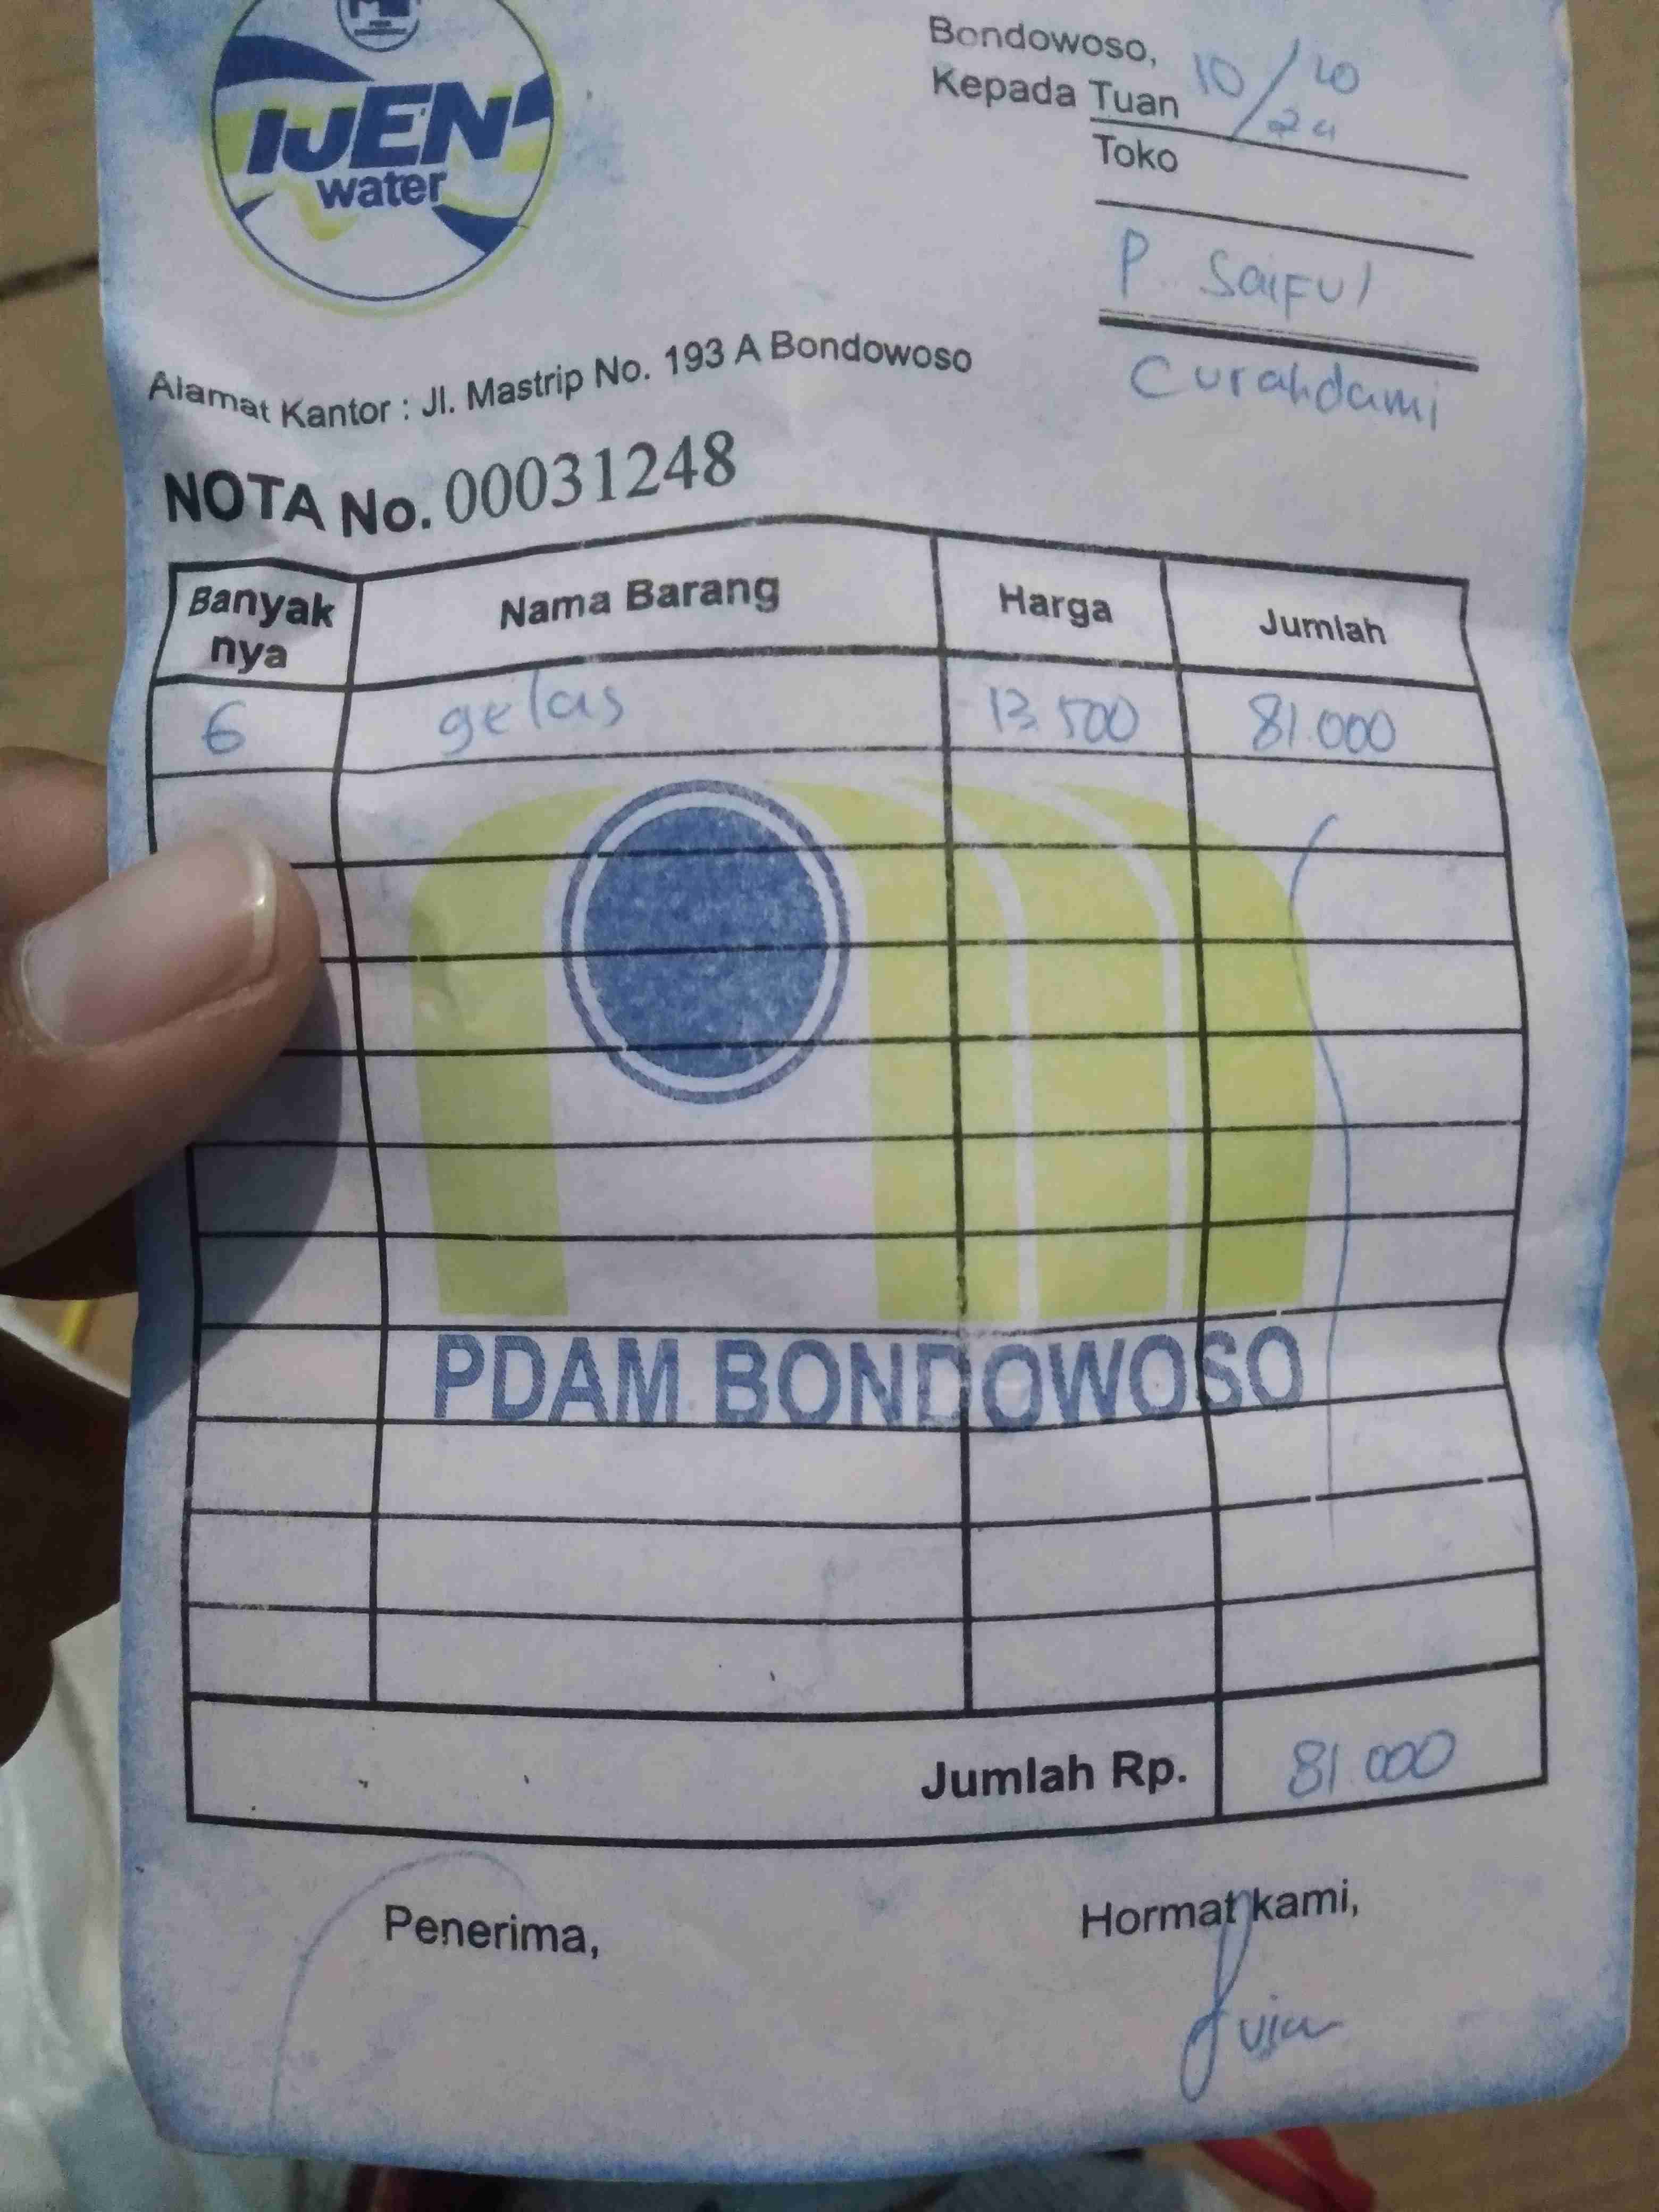 IJEN
water
Bondowoso, 10/10
24
Kepada Tuan
Toko
P. Saiful
Curahdami
Alamat Kantor : Jl. Mastrip No. 193 A Bondowoso
NOTA No. 00031248
Banyak nya Nama Barang Harga Jumlah
6 gelas 13.500 81.000
PDAM BONDOWOSO
Jumlah Rp. 81.000
Penerima, Hormat kami,